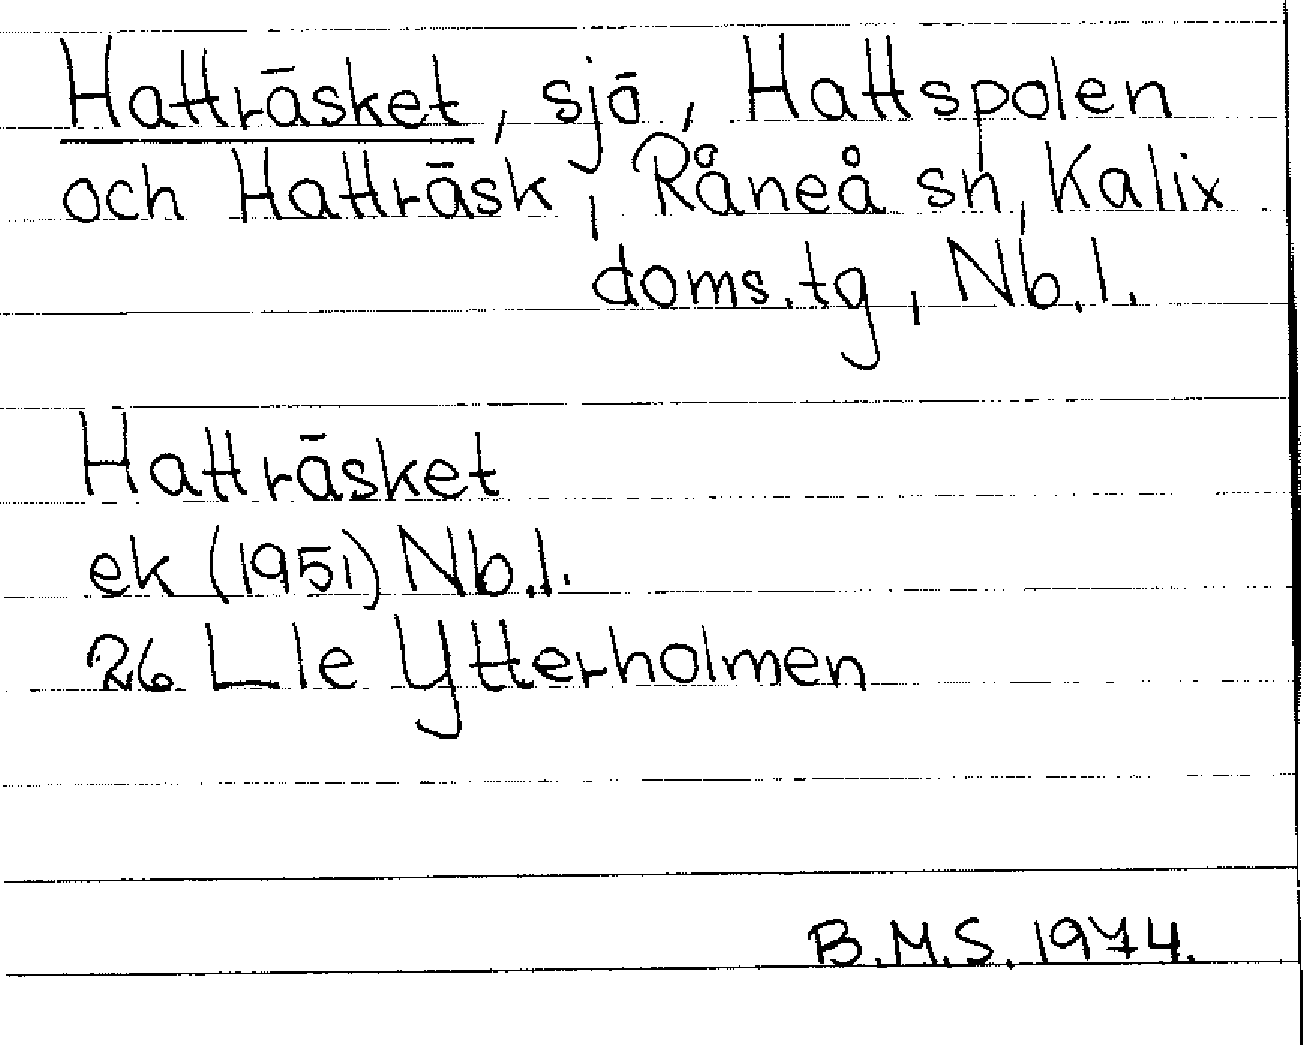 Hatträsket, sjö, Hattspolen
och Hatträsk, Råneå sn, Kalix
doms.tg, Nb.l.
Hatträsket
ek (1951) Nb.l.
26 L le Ytterholmen
B.M.S. 1974.